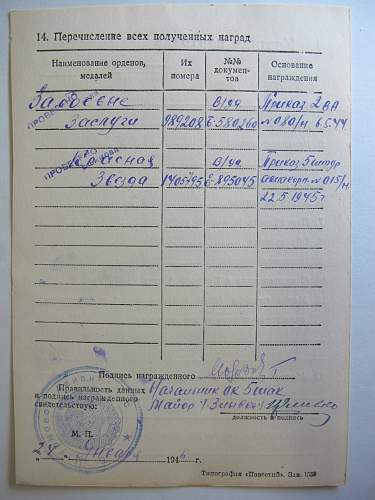 14. Перечисление всех полученных наград
Наименование орденов, медалей
Их номера
№№ документов
Основание награждения
За боевые В/уд Приказ 2ВА
Заслуги 989208 Е-580260 №080/н 6.5.44
Красная В/уд Приказ 5 штур
Звезда 1405795 Е-895045 авиакорп. №015/н
22.5.1945г
ПРОВЕРЕНО
ПРОВЕРЕНО
Подпись награжденного
Правильность данных Начальник ок 5шак
и подпись награжденного Майор
свидетельствую:
должность и подпись
М. П.
„24“ Января 1946 г.
Типография «Известий». Зак. 1538